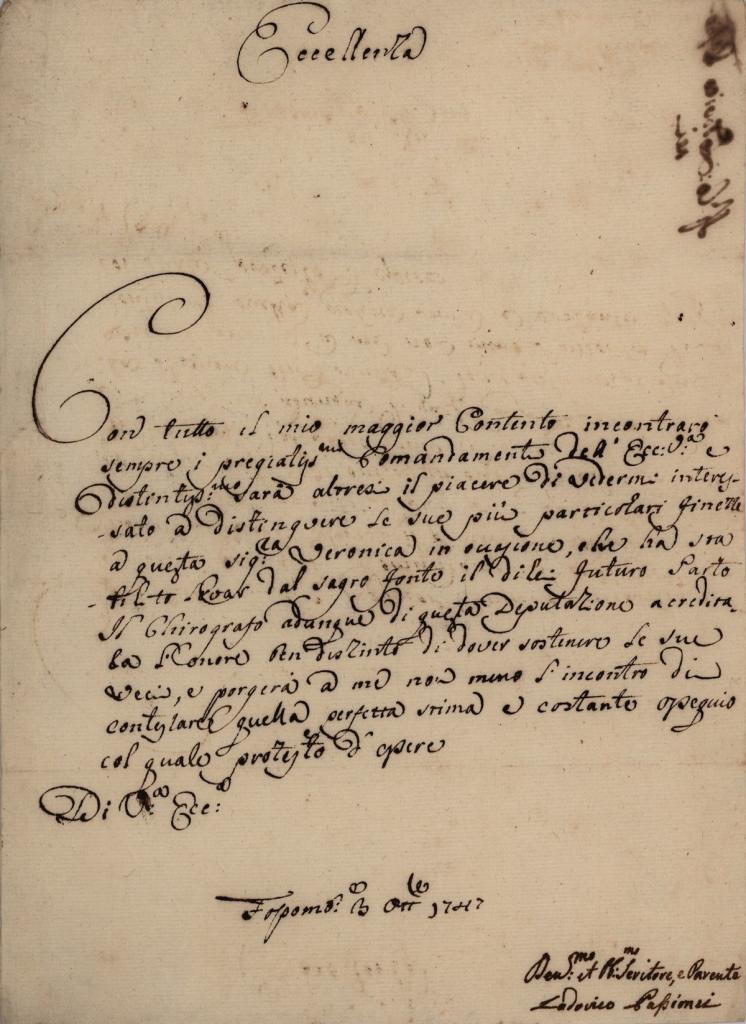 Eccellenza
Con tutto il mio maggior Contento incontrarò
sempre i pregiatiss.mi Comandamenti dell' Ecc: V.a e
distintiss:mo sarà altresi il piacere di vedermi interes-
-sato a distinguere le sue più particolari finezze
a questa sig.ra Veronica in occasione, che ha sta
dal sagro fonte il di lei futuro Parto
Il Chirografo adunque di questa Deputazione acredita-
la l'Onore ben distinto di dover sostenere le sue
veci, e porgerà a me non meno l'incontro di
contestare quella perfetta stima e costante ossequio
col quale protesto d' essere
Di V.a Ecc:a
Fossomb.e 3 Ott.e 1747
Dev.mo et Servitore, e Parente
Lodovico Passionei